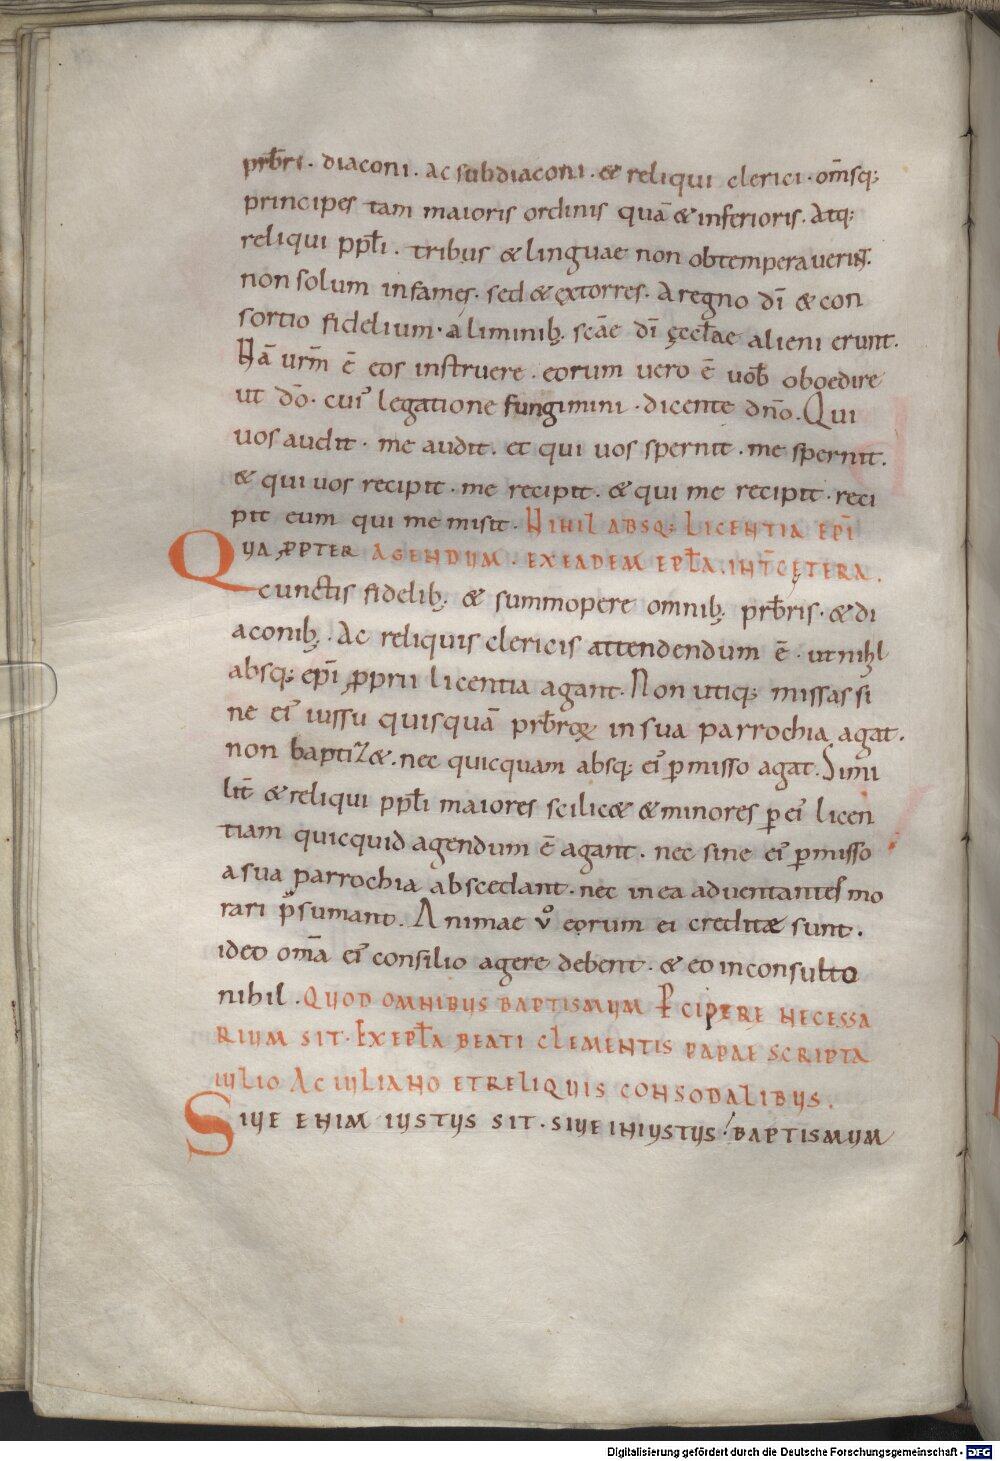 prb̄ri. diaconi. ac subdiaconi. & reliqui clerici. om̄sq;
principes tam maioris ordinis quā & inferioris. Atq;
reliqui ppl̄i. tribus & linguae non obtemperauerint.
non solum infames. sed & extorres. A regno dī & con
sortio fidelium. a liminib; scāe dī ęccl̄ae alieni erunt.
Nā urm̄ ē eos instruere. eorum uero ē uob̄ oboedire
ut dō. cui' legatione fungimini. dicente dn̄o. Qui
uos audit. me audit. et qui uos spernit. me spernit.
& qui uos recipit. me recipit. & qui me recipit. reci
pit eum qui me misit. NIHIL ABSQ; LICENTIA EPĪ
QUA PROPTER AGENDUM. EX EADEM EPL̄A. INT̄ CĘTERA.
cunctis fidelib; & summopere omnib; prb̄ris. & di
aconib; Ac reliquis clericis attendendum ē. ut nihil
absq; epī proprii licentia agant. Non utiq; missas si
ne ei' iussu quisquā prb̄roꝝ in sua parrochia agat.
non baptiz&. nec quicquam absq; ei' ꝑmisso agat. Simi
lit̄ & reliqui ppl̄i maiores scilic& & minores ꝑ ei' licen
tiam quicquid agendum ē agant. nec sine ei' ꝑmisso
a sua parrochia abscedant. nec in ea aduentantes mo
rari p̄sumant. Animae ů eorum ei creditæ sunt.
ideo om̄a ei' consilio agere debent. & eo inconsulto
nihil. QUOD OMNIBUS BAPTISMUM PERCIPERE NECESSA
RIUM SIT. EX EPL̄A BEATI CLEMENTIS PAPAE SCRIPTA
IULIO AC IULIANO ET RELIQUIS CONSODALIBUS.
SIUE ENIM IUSTUS SIT. SIUE INIUSTUS. BAPTISMUM
Digitalisierung gefördert durch die Deutsche Forschungsgemeinschaft - DFG